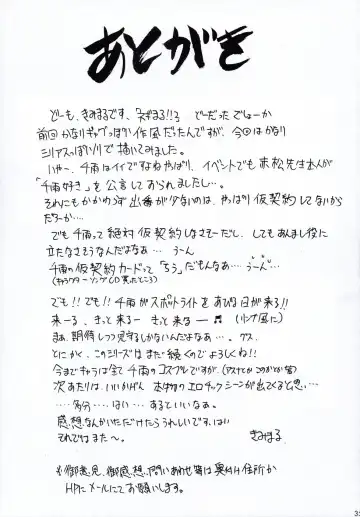 あとがき
どーも、きみまるです、ネギまる!!3 どーだったでしょーか
前回かなりギャグっぽい作風だったんですが、今回はかなり
シリアスっぽいノリで描いてみました。
いやー、千雨はイイですねやっぱり、イベントでも赤松先生本人が
「千雨好き」を公言しておられましたし…。
それにもかかわらず出番が少ないのは、やっぱり仮契約してないから
だろーか…
でも千雨って絶対仮契約しなさそーだし、してもあんまし役に
立たなさそうなんだよなぁ… うーん
千雨の仮契約カードって「ちう」だもんなぁ… うーん…
(キャラクターソングCD買ったところ)
でも!! でも!! 千雨がスポットライトをあびる日が来る!!
来ーる きっと来るー きっと来るー ♬ (リング風に)
まぁ、期待しつつ見守るしかないんだよなぁ…。
とにかく、このシリーズはまだ続くのでよろしくね!!
今までキャラは全て千雨のコスプレですが、
次あたりは、いいかげん 本物の エロチックシーンが出てくると思い…
……多分……はい… あるといいなぁ。
感想なんかいただけたらうれしいです、はい
それではまた〜。 きみまる
※御意見、御感想、問いあわせ等は奥付け住所か
HPにメールにてお願いします。